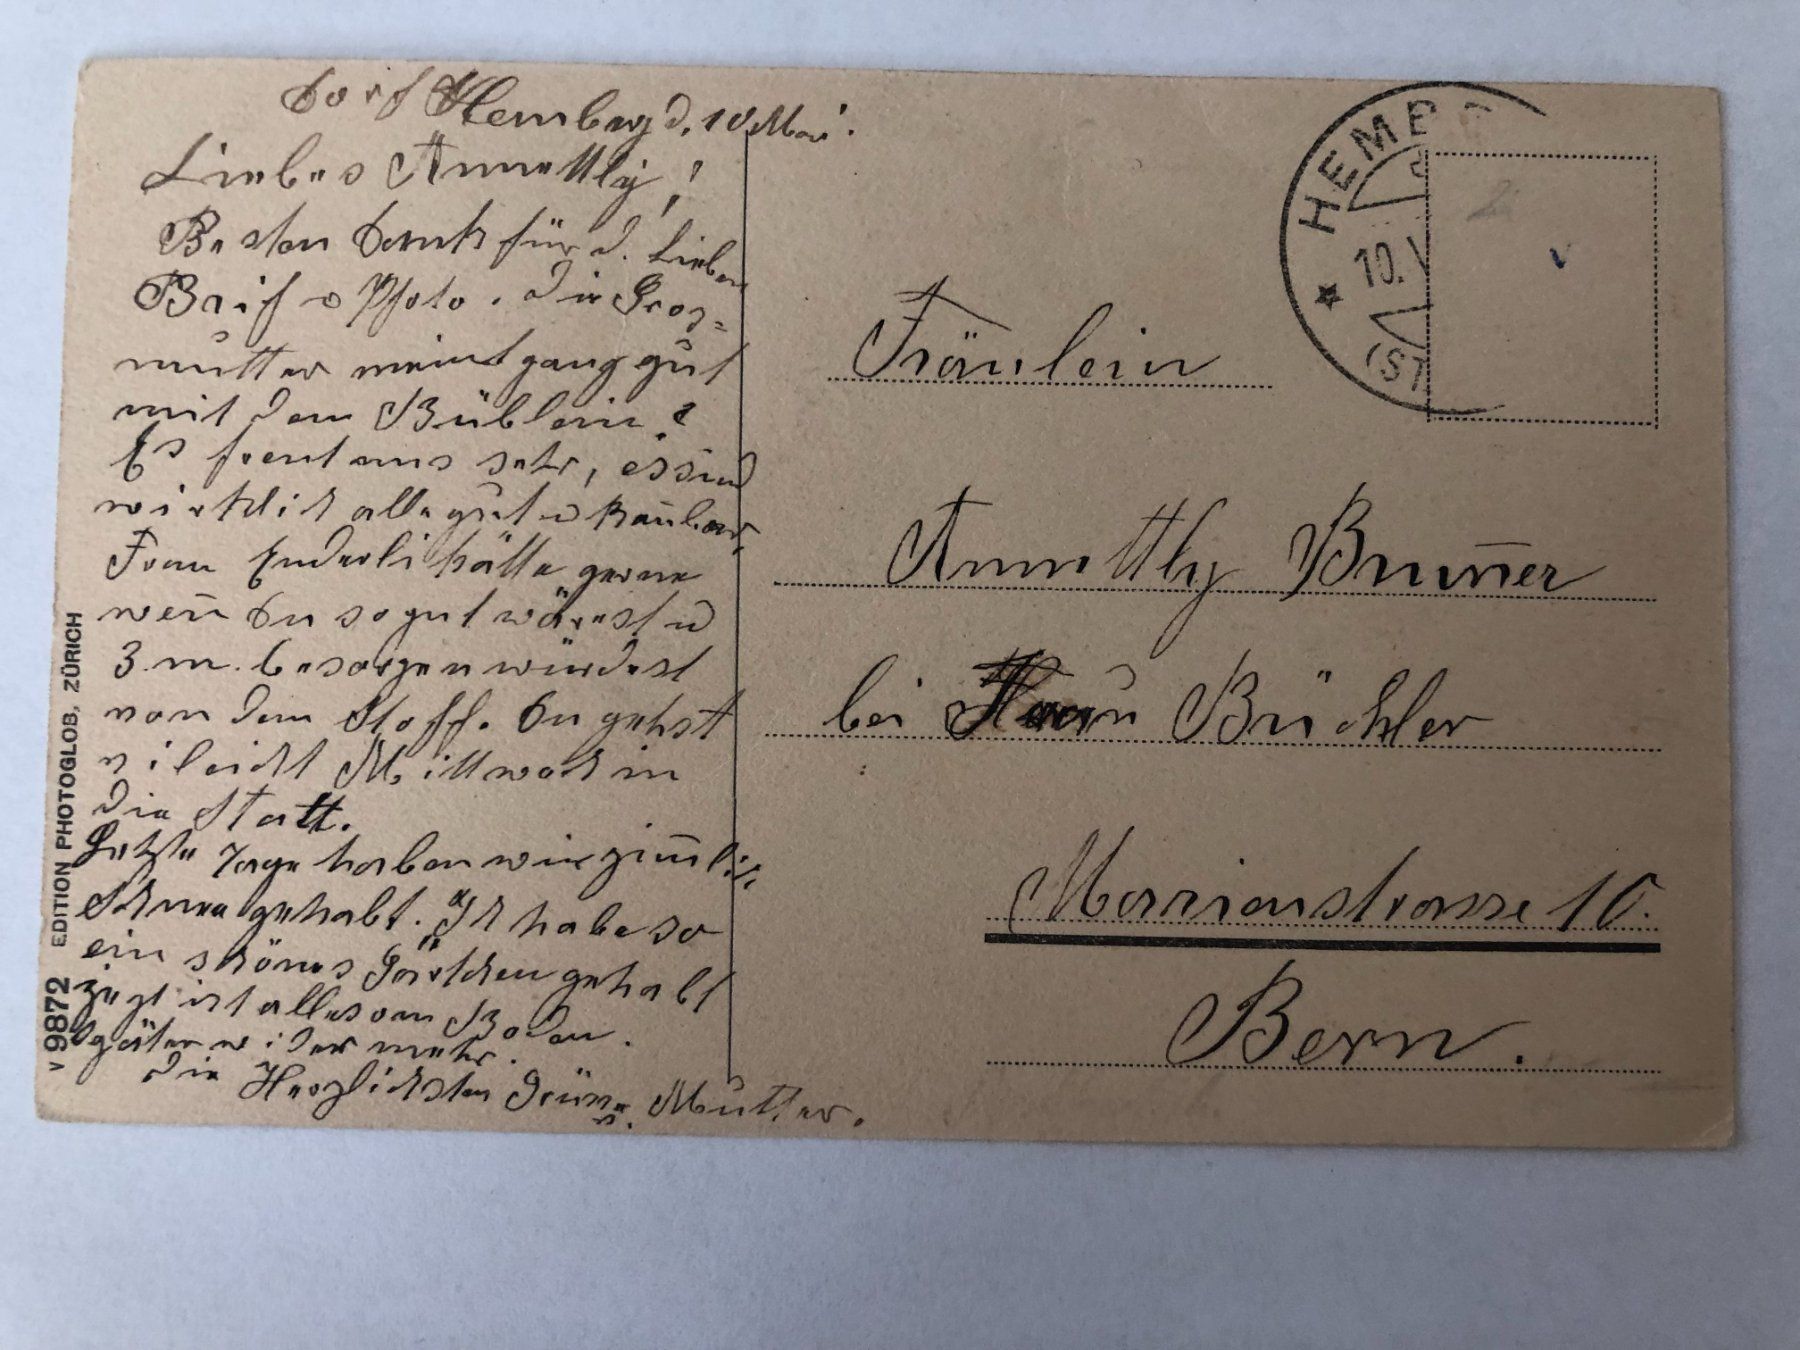 Dorf Hemberg d. 10 Mai.
Liebes Annettly!
Besten Dank für d. lieben
Brif u Pfoto. Die Gros=
mutter meint ganz gut
mit dem Büblein?
Es freut uns sehr, es sind
wirklich alle gut u
Frau Enderli hätte gerne
wen̄ Du so gut wärest u
3 m. besorgen würdest
von dem Stoff. Du gehst
vileicht Mittwoch in
die Statt.
Letzte Tage haben wir zim̄lich
Schnee gehabt. Ich habe so
ein schönes Gärtchen gehabt
jezt ist alles am Boden.
später wider mehr.
Die Herzlichsten Grüsse. Mutter.
V 9872 EDITION PHOTOGLOB, ZÜRICH
HEMB
10.V
(ST
Fräulein
Annettly Brun̄er
bei Frau Büchler
Marrianstrasse 10.
Bern.